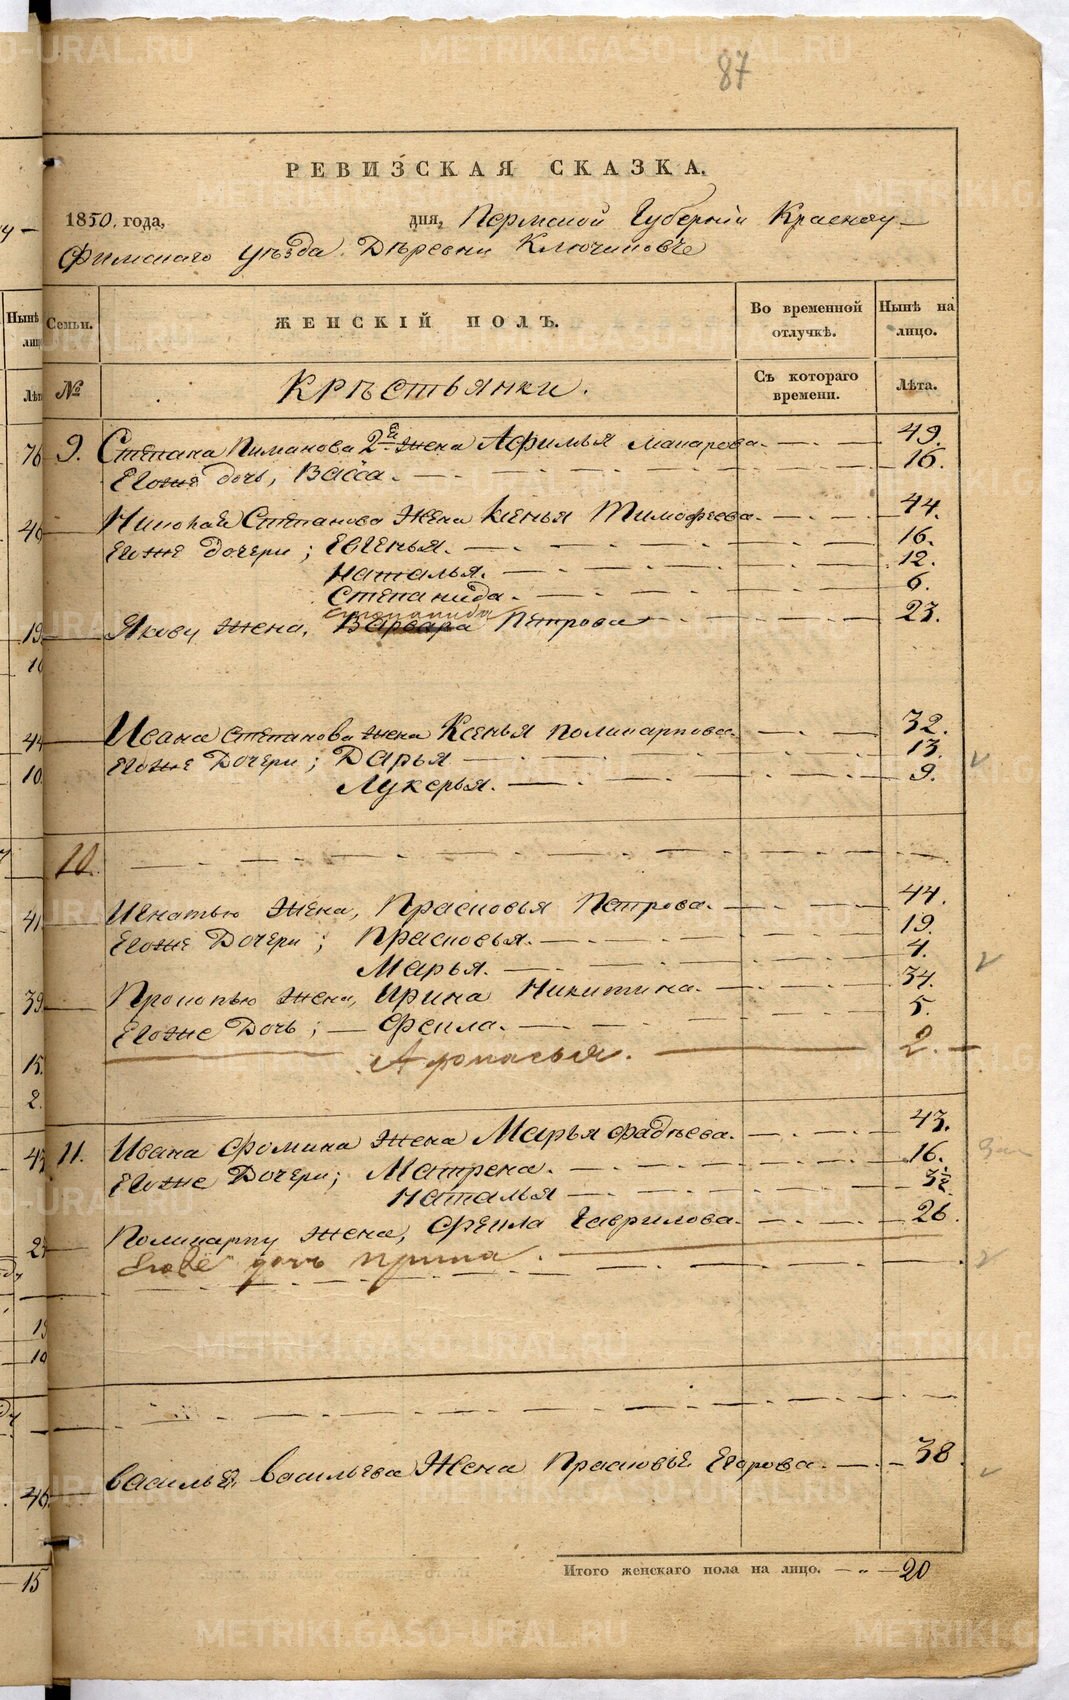 87
РЕВИЗСКАЯ СКАЗКА.
1850. года, дня, Пермской Губерніи Красноу-
фимскаго уѣзда. Дѣревни Ключиковче
Нынѣ
Семьи. ЖЕНСКІЙ ПОЛЪ. Во временной отлучкѣ. Нынѣ на лицо.
№ Крѣстьянки. Съ котораго времени. Лѣта.
76 9. Степана Пиманова 2я жена Афимья Макарова. 49.
Егоже дочь, Васса. 16.
Николая Степанова Жена Ксенья Тимофеева. 44.
Егоже дочери; Евгенья. 16.
Наталья. 12.
Степанида. 6.
Степанида
19 Якову Жена, Варвара Петрова 23.
44 Ивана Степанова жена Ксенья Поликарпова. 32.
10 Егоже Дочери; Дарья 13.
Лукерья. 9.
10.
41 Игнатью Жена, Прасковья Петрова. 44.
Егоже Дочери; Прасковья. 19.
Марья. 4.
39 Прокопью Жена, Ирина Никитина. 34.
Егоже Дочь; Фекла. 5.
15. Афонасья. 2.
2.
11. Ивана Фомина Жена Марья Фадѣева. 43.
Егоже Дочери; Матрена. 16.
Наталья 3½.
Поликарпу Жена, Фекла Гаврилова. 26.
Егоже дочь Ирина.
10
Василья Васильева Жена Прасковья Егорова. 38.
46
Итого женскаго пола на лицо. 20
15
METRIKI.GASO-URAL.RU